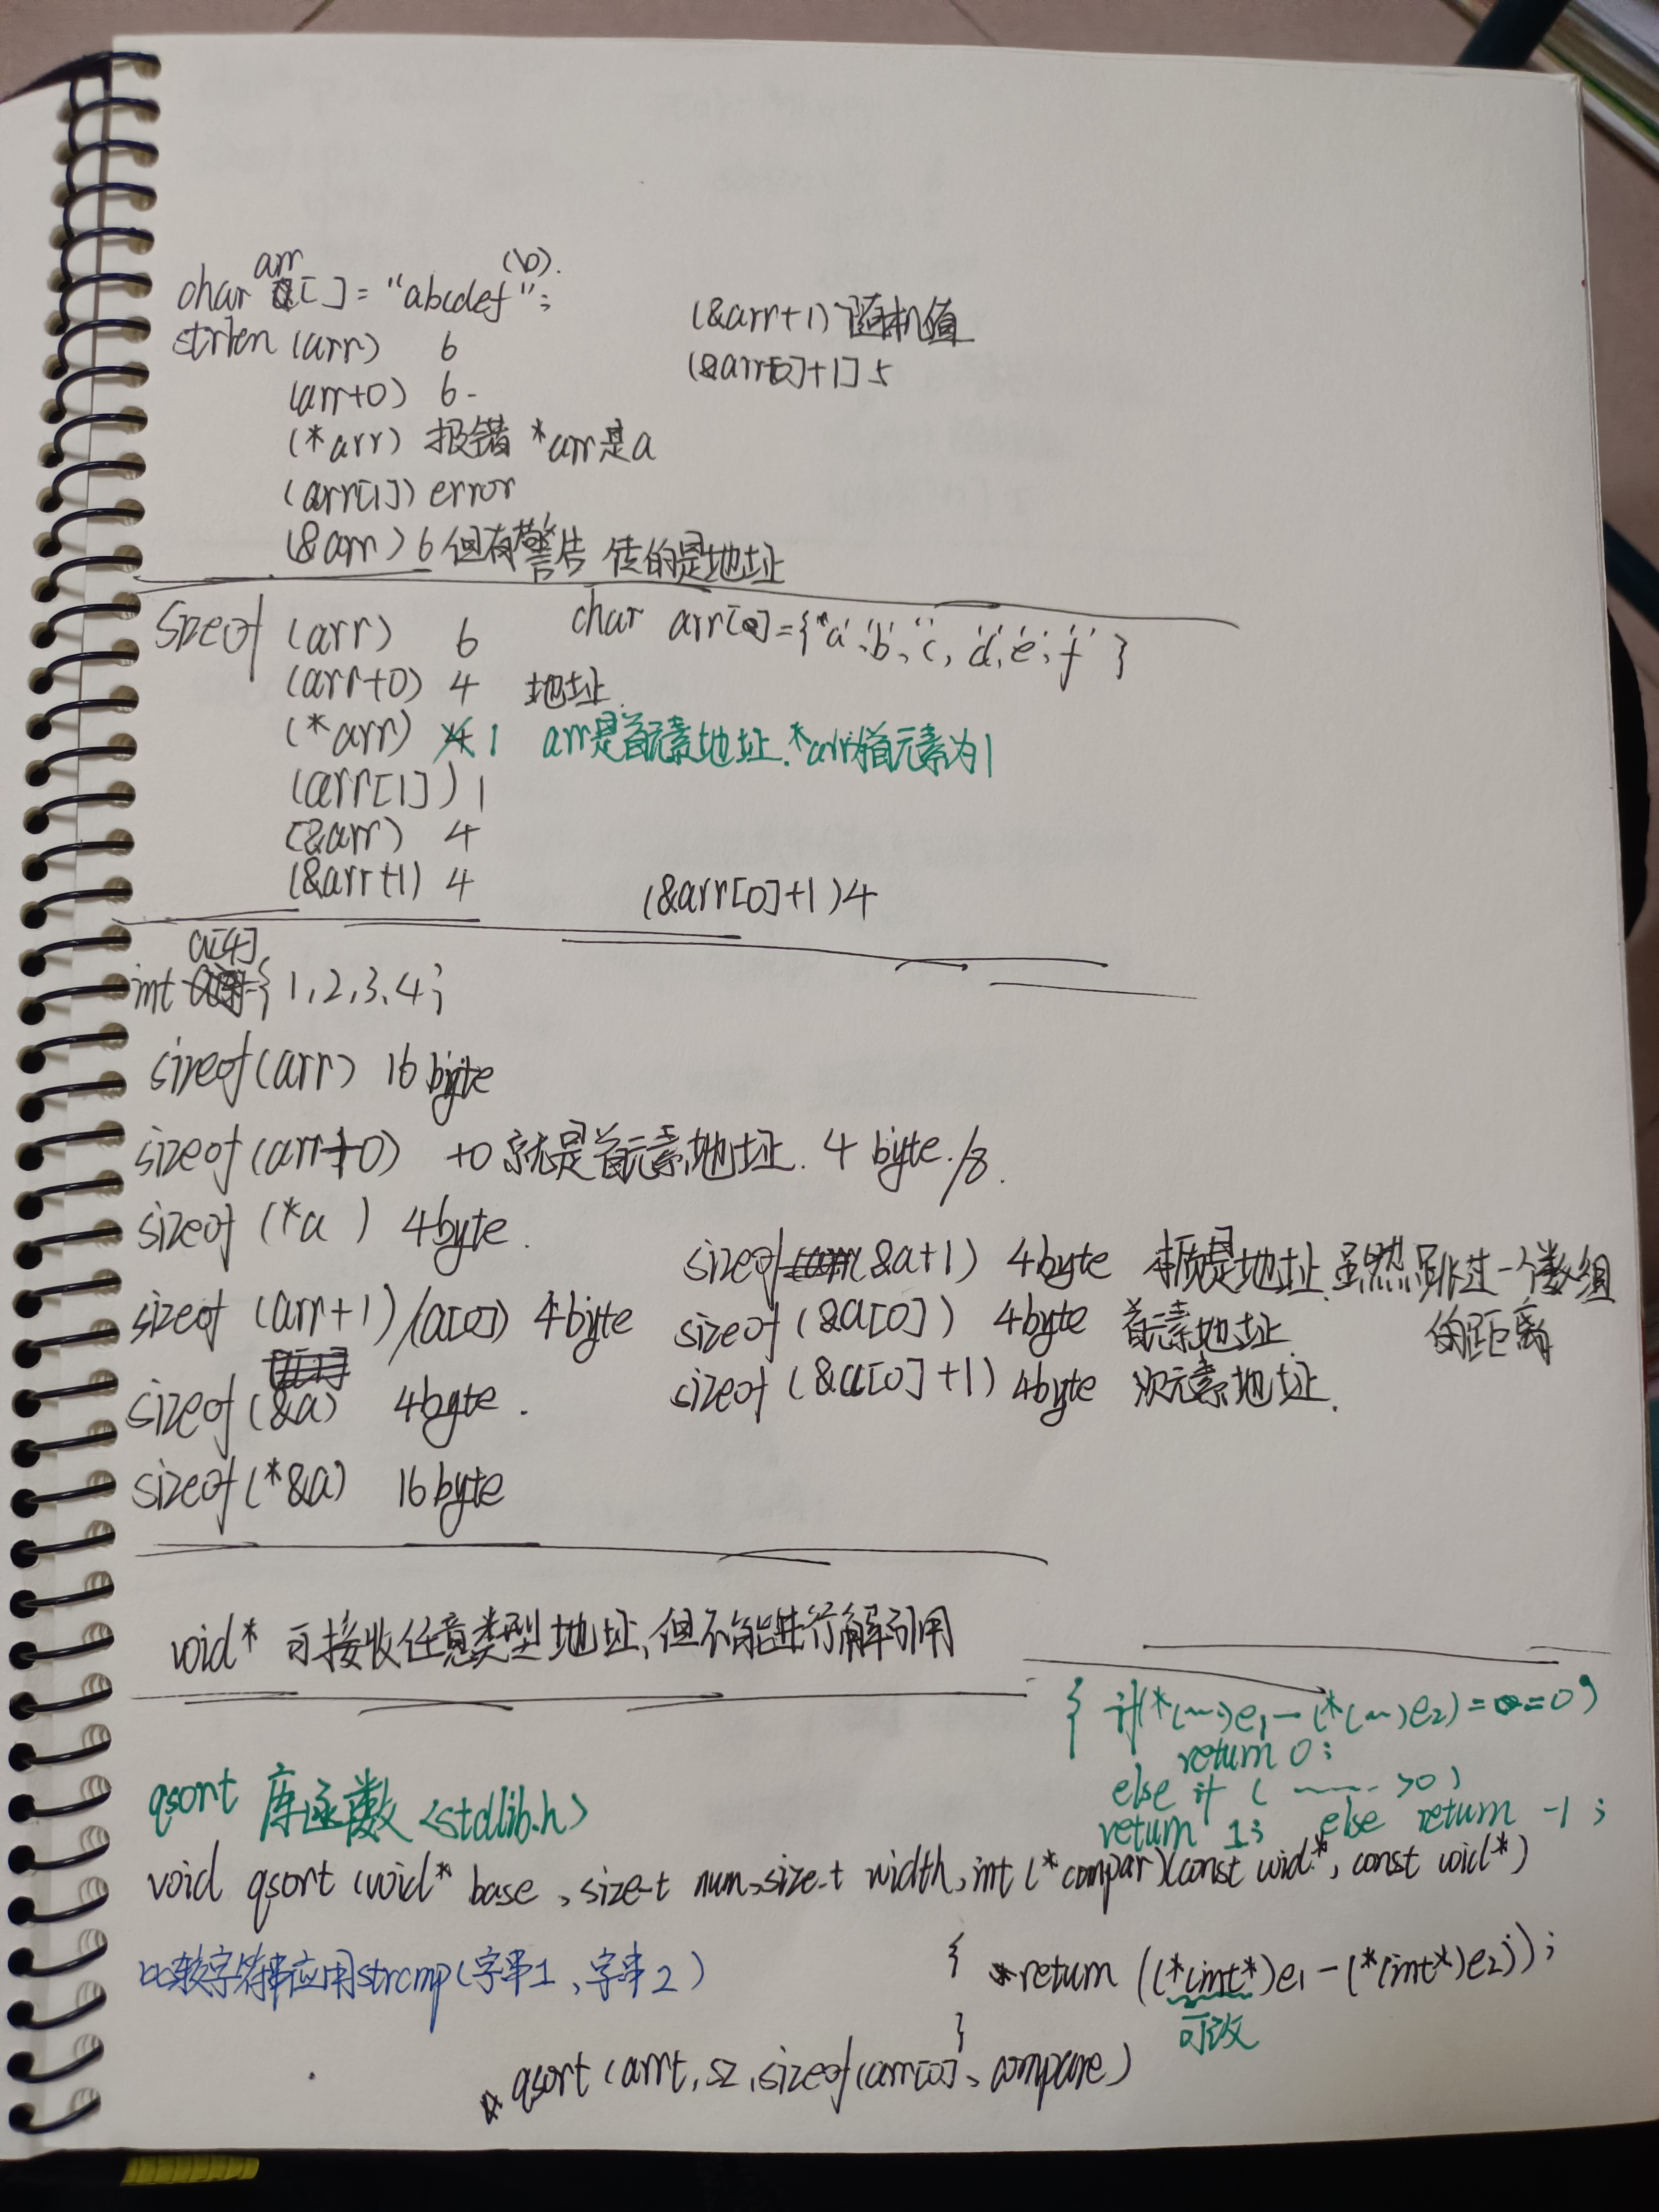 char arr[] = "abcdef"; (\0).
strlen (arr) 6
(&arr+1) 随机值
(arr+0) 6
(&arr[0]+1] 5
(*arr) 报错 *arr是a
(arr[1]) error
(&arr) 6 但有警告 传的是地址
sizeof (arr) 6
char arr[]={'a','b','c,'d','e','f'}
(arr+0) 4 地址.
(*arr) 1 arr是首元素地址.*arr为首元素为1
(arr[1]) 1
(&arr) 4
(&arr+1) 4
(&arr[0]+1) 4
int a[4]={1,2,3,4;
sizeof(arr) 16 byte
sizeof(arr+0) +0就是首元素地址. 4 byte./8.
sizeof (*a ) 4byte.
sizeof (&a+1) 4byte 本质是地址.虽然跳过一个数组的距离
sizeof (arr+1)/(a[0]) 4byte
sizeof (&a[0]) 4byte 首元素地址.
sizeof (&a) 4byte.
sizeof (&a[0]+1) 4byte 次元素地址.
sizeof(*&a) 16byte
void* 可接收任意类型地址,但不能进行解引用
{ if(*(~)e1-(*(~)e2)==0)
return 0;
else if ( >0)
return 1; else return -1;
qsort 库函数 <stdlib.h>
void qsort (void* base , size-t num, size-t width, int (*compar)(const void*, const void*)
比较字符串应用strcmp(字串1、字串2)
{ *return ((*(int*)e1-(*(int*)e2));
可改
}
qsort (arrt, sz, sizeof(arr[0], compare)